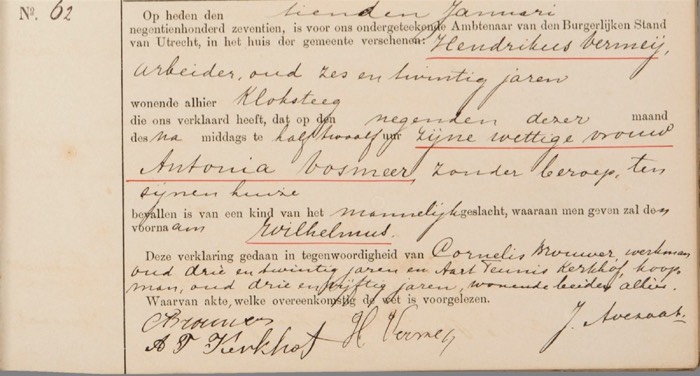 Nº. 62
Op heden den tienden Januari
negentienhonderd zeventien, is voor ons ondergeteekende Ambtenaar van den Burgerlijken Stand
van Utrecht, in het huis der gemeente verschenen: Hendrikus Vermeij,
arbeider, oud zes en twintig jaren
wonende alhier Kloksteeg
die ons verklaard heeft, dat op den negenden dezer maand
des na middags te half twaalf uur zijne wettige vrouw
Antonia Vosmeer, zonder beroep, ten
zijnen huize
bevallen is van een kind van het mannelijk geslacht, waaraan men geven zal den
voornaam Wilhelmus.
Deze verklaring gedaan in tegenwoordigheid van Cornelis Brouwer, werkman
oud drie en twintig jaren en Aart Teunis Kerkhof, koop
man, oud drie en vijftig jaren, wonende beiden alhier.
Waarvan akte, welke overeenkomstig de wet is voorgelezen.
CBrouwer
A T Kerkhof H Vermeij J.